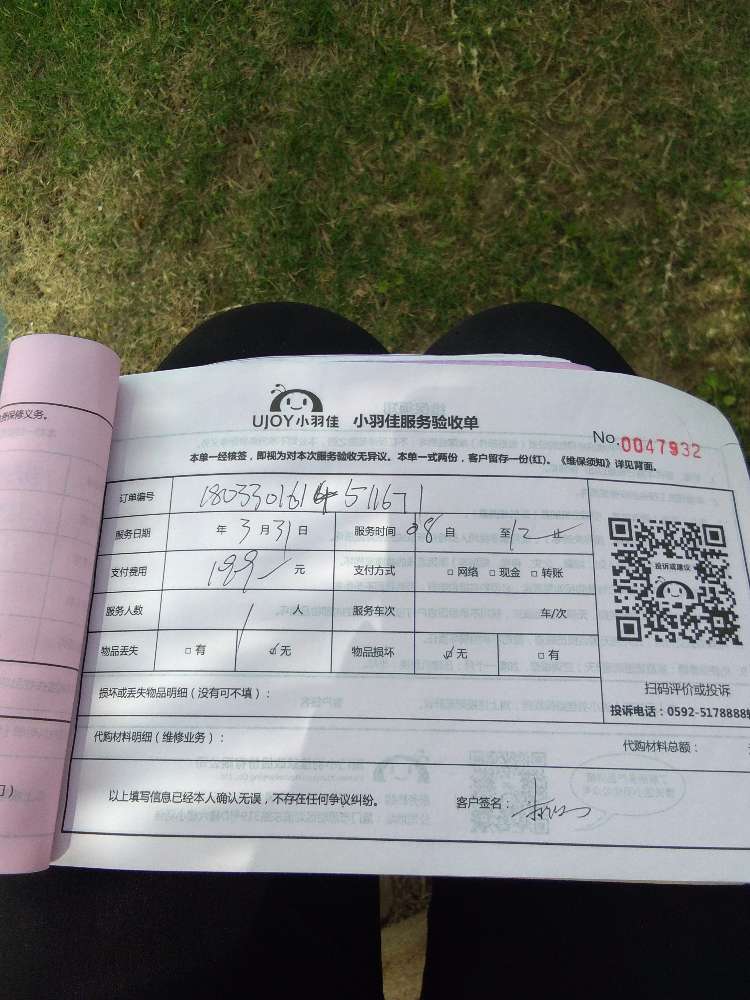 UJOY小羽佳 小羽佳服务验收单
No.0047932
本单一经核签，即视为对本次服务验收无异议。本单一式两份，客户留存一份(红)。《维保须知》详见背面。
保修义务。
订单编号
服务日期 年 3 月 31 日 服务时间 08 自 至 12 止
支付费用 199 元 支付方式 □ 网络 □ 现金 □ 转账
服务人数 1 人 服务车次 车/次
物品丢失 □ 有 ☑ 无 物品损坏 ☑ 无 □ 有
投诉或建议
扫码评价或投诉
投诉电话：0592-5178888
损坏或丢失物品明细（没有可不填）：
代购材料明细（维修业务）： 代购材料总额：
以上填写信息已经本人确认无误，不存在任何争议纠纷。 客户签名：